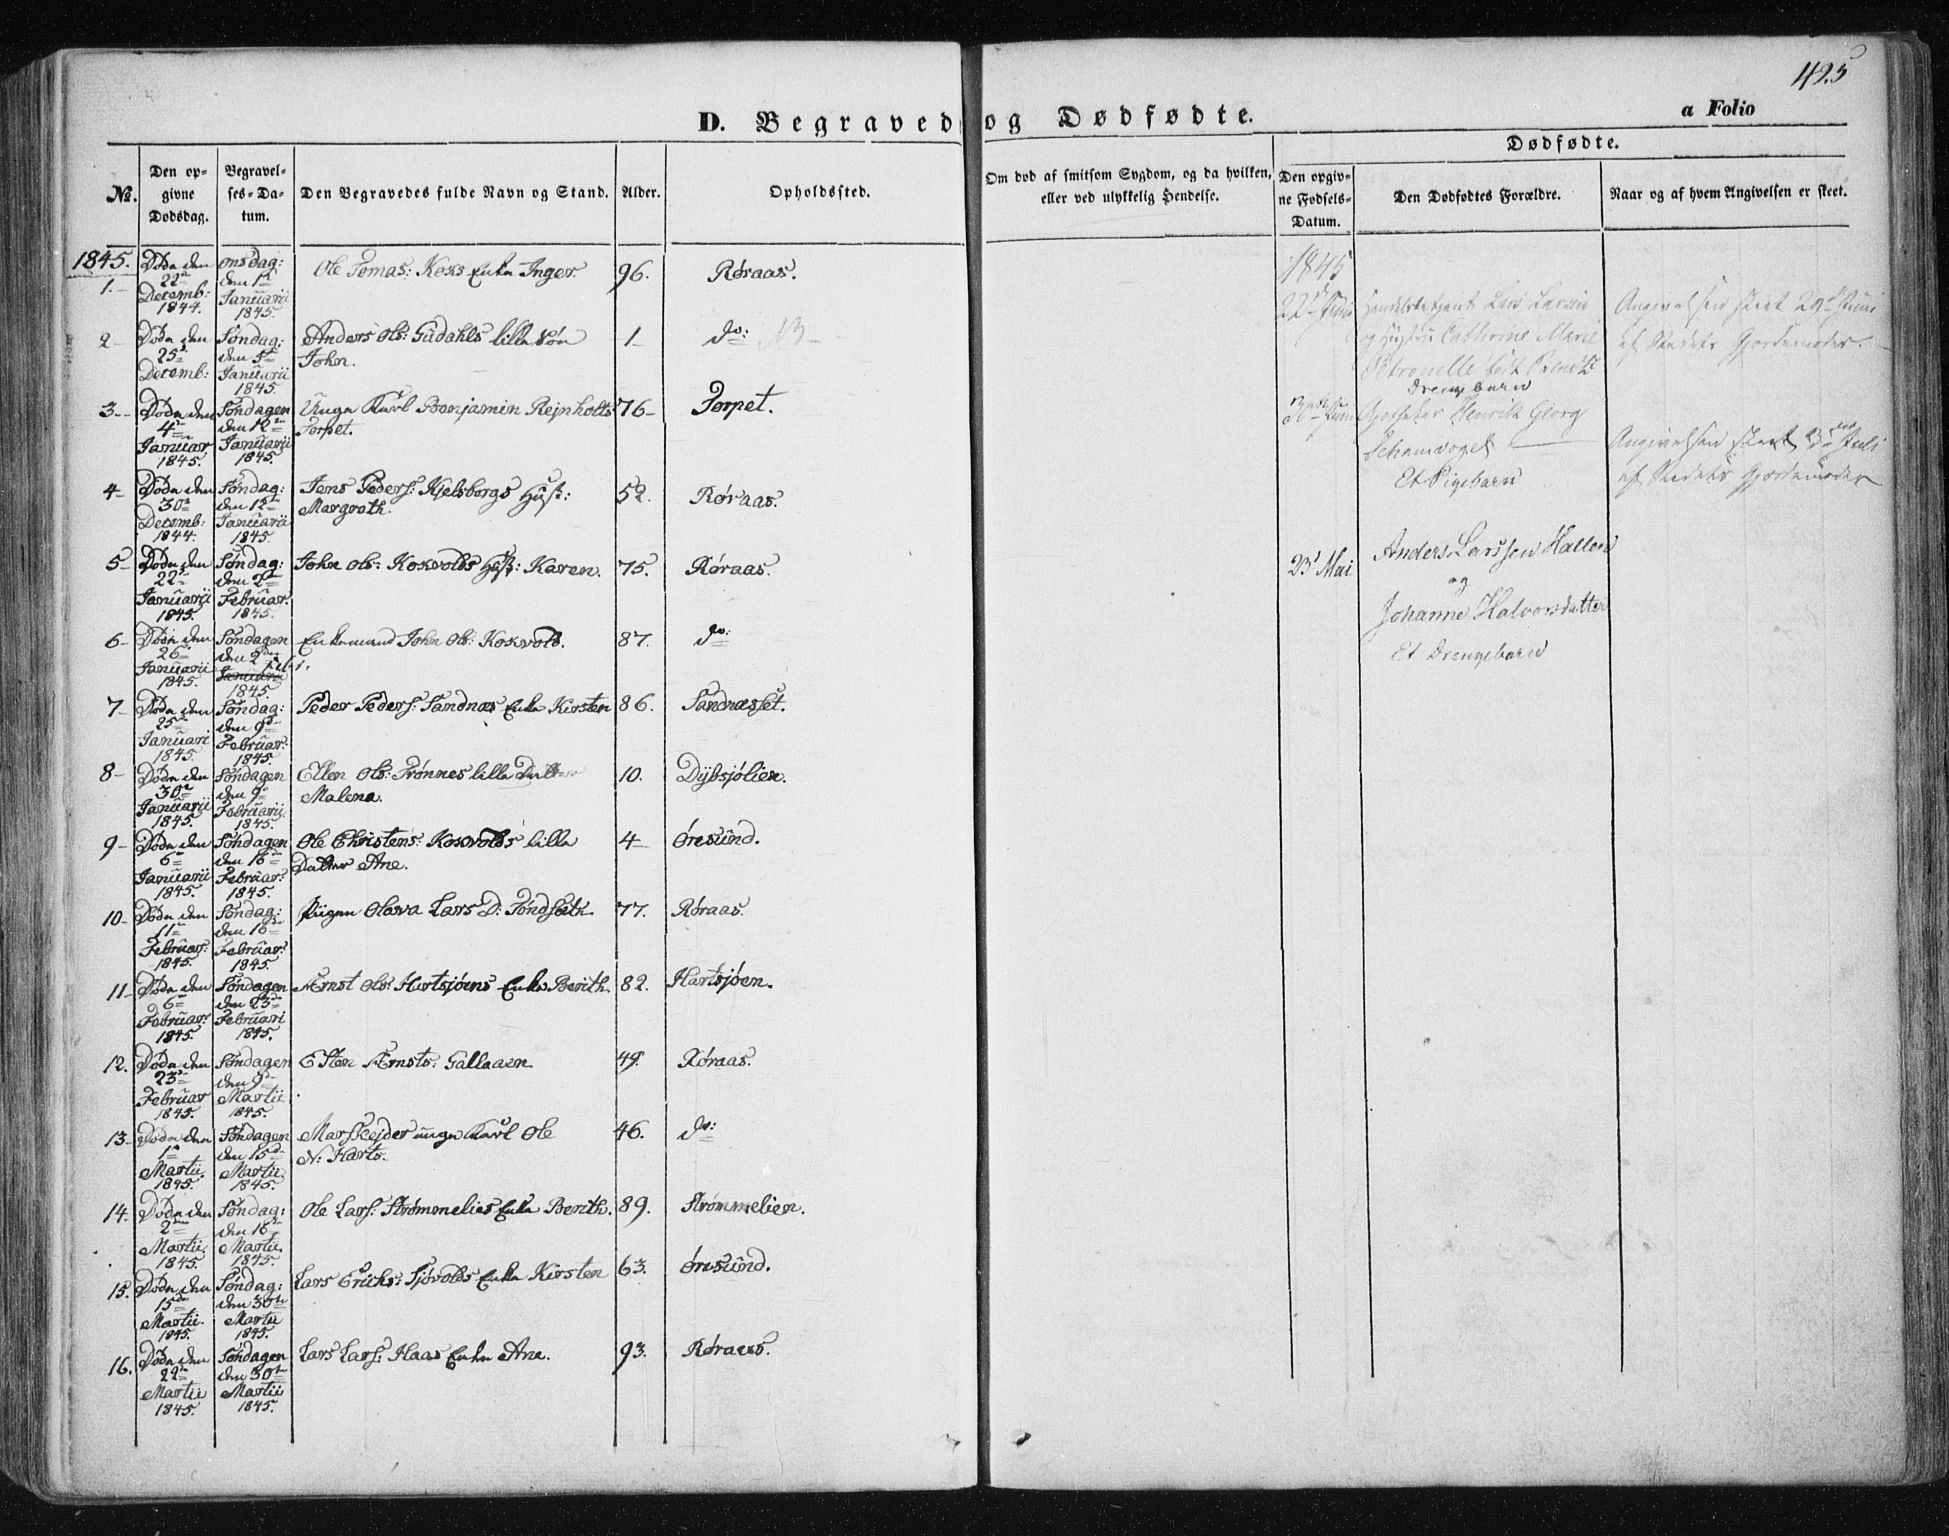 425
D. Begravede og Dødfødte.
a Folio
Dødfødte.
No.
Den op-
givne
Dødsdag.
Begravel-
ses-Da-
tum.
Den Begravedes fulde Navn og Stand.
Alder.
Opholdssted.
Om død af smitsom Sygdom, og da hvilken,
eller ved ulykkelig Hendelse.
Den opgiv-
ne Fødsels-
Datum.
Den Dødfødtes Forældre.
Naar og af hvem Angivelsen er skeet.
1845.
1. Døde den 22de Decemb: 1844. onsdag: den 1te Januarii 1845. Ole Tomas: Enke Inger 96. Røraas.
2 Døde den 25de Decemb: Søndag: den 5te Januarii 1845 Anders Ols: Gudahls lille Søn
John. 1 do:
3 Døde den 4de Januar 1845. Søndagen den 12te Januarii 1845. Unge Karl Benjamin Rejnholts
Torpet. 76 Torpet.
4 Døde den 30te Decemb: 1844. Søndag: den 12te Januarii 1845. Jens Peders: Kjelsbergs Hust:
Margreth. 52. Røraas.
5 Døde den 22de Januarii 1845. Søndag: den 2den Februar. 1845. John Ols: Kosvolds Hust: Karen. 75. Røraas.
6 Døde den 26de Januarii 1845. Søndagen den 2den Januari 1845. Enkemand John Ols: Kosvold. 87. do:
7 Døde den 25de Januari 1845. Søndag: den 9de Februar: 1845. Peder Peders: Sandnæs Enke Kirsten 86. Sandnæsset.
8 Døde den 30te Januarii 1845. Søndagen den 9de Februarii. 1845. Ellen Ols: Trønnes lille Datter
Malena. 10. Dybsjølien.
9 Døde den 6te Januarii 1845. Søndagen den 16de Februar: 1845. Ole Christens: Kosvolds lille
Datter Ane. 4 Øresund.
10 Døde den 11te Februar: 1845. Søndag: den 16de Februar: 1845. Pigen Olava Lars D: Søndsæth. 77. Røraas.
11 Døde den 6te Februar: 1845. Søndagen den 23de Februari 1845. Ernst Ols: Hertsjøens Enke Berith. 82. Hartsjøen.
12. Døde den 23de Februar 1845. Søndagen den 9de Martii 1845. Esten Ernsts: Gallaaen 49. Røraas.
13 Døde den 1te Martii. 1845. Søndagen den 15de Martii. 1845. unge Karl Ole
N: Harts. 46. do:
14. Døde den 2den Martii. 1845. Søndag: den 16de Martii. 1845. Ole Lars: Strømmelies Enke Berith. 89. Strømmelien.
15. Døde den 15de Martii. 1845. Søndag: den 30te Martii 1845. Lars Erichs: Sjøvolds Enke Kirsten 63. Øresund.
16. Døde den 22de Martii 1845. Søndagen den 30te Martii 1845. Lars Lars: Haas Enke Ane. 93. Røraas.
1845
22de Juni Lars Larsen
og Hustru Cathrine Marie
Petronelle født
Drengebarn
Angivelsen skeet 29de Juni
af Stedets Gjordemoder.
Juni Apotheker Henrik Georg
Et Pigebarn
Angivelsen skeet 3die Juli
af Stedets Gjordemoder
23 Mai Anders Larssen Hallen
og
Johanne Halvorsdatter
Et Drengebarn